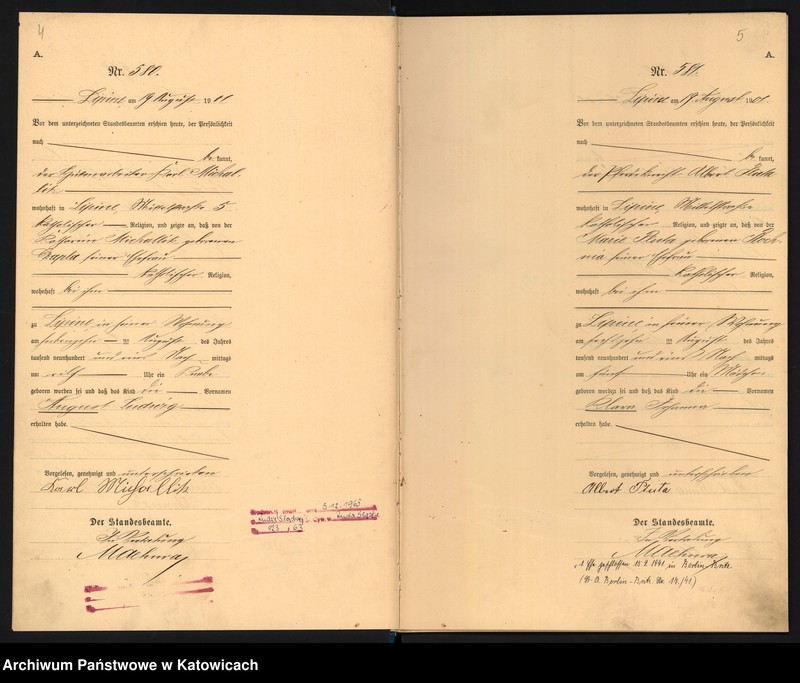 4
A.
Nr. 580.
Lipine am 19 August 1901
Vor dem unterzeichneten Standesbeamten erschien heute, der Persönlichkeit
nach
be kannt,
der Hüttenarbeiter Karl Michal-
litz
wohnhaft in Lipine, Mittelstraße 5
katholischer Religion, und zeigte an, daß von der
Katharina Michallitz geborenen
seiner Ehefrau
katholischer Religion,
wohnhaft bei ihm
zu Lipine in seiner Wohnung
am siebenzehn ten August des Jahres
tausend neunhundert und eins Nach mittags
um elf Uhr ein Knabe
geboren worden sei und daß das Kind die Vornamen
August Ludwig
erhalten habe.
Vorgelesen, genehmigt und unterschrieben
Karl Michallitz
Der Standesbeamte.
In Vertretung
5
A.
Nr. 581.
Lipine am 19 August 1901.
Vor dem unterzeichneten Standesbeamten erschien heute, der Persönlichkeit
nach
be kannt,
der Pferdeknecht Albert Pluta
wohnhaft in Lipine, Mittelstraße
katholischer Religion, und zeigte an, daß von der
Marie Pluta geborenen
seiner Ehefrau
katholischer Religion,
wohnhaft bei ihm
zu Lipine in seiner Wohnung
am sechszehn ten August des Jahres
tausend neunhundert und eins Nach mittags
um fünf Uhr ein Mädchen
geboren worden sei und daß das Kind die Vornamen
Klara Johanna
erhalten habe.
Vorgelesen, genehmigt und unterschrieben
Albert Pluta
Der Standesbeamte.
In Vertretung
1. Ehe geschlossen 15.2.1941 in Berlin-Britz
(St. A. Berlin-Britz No. 14/41)
Archiwum Państwowe w Katowicach